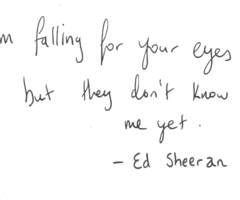 m falling for your eyes
but they don't know
me yet.
– Ed Sheeran